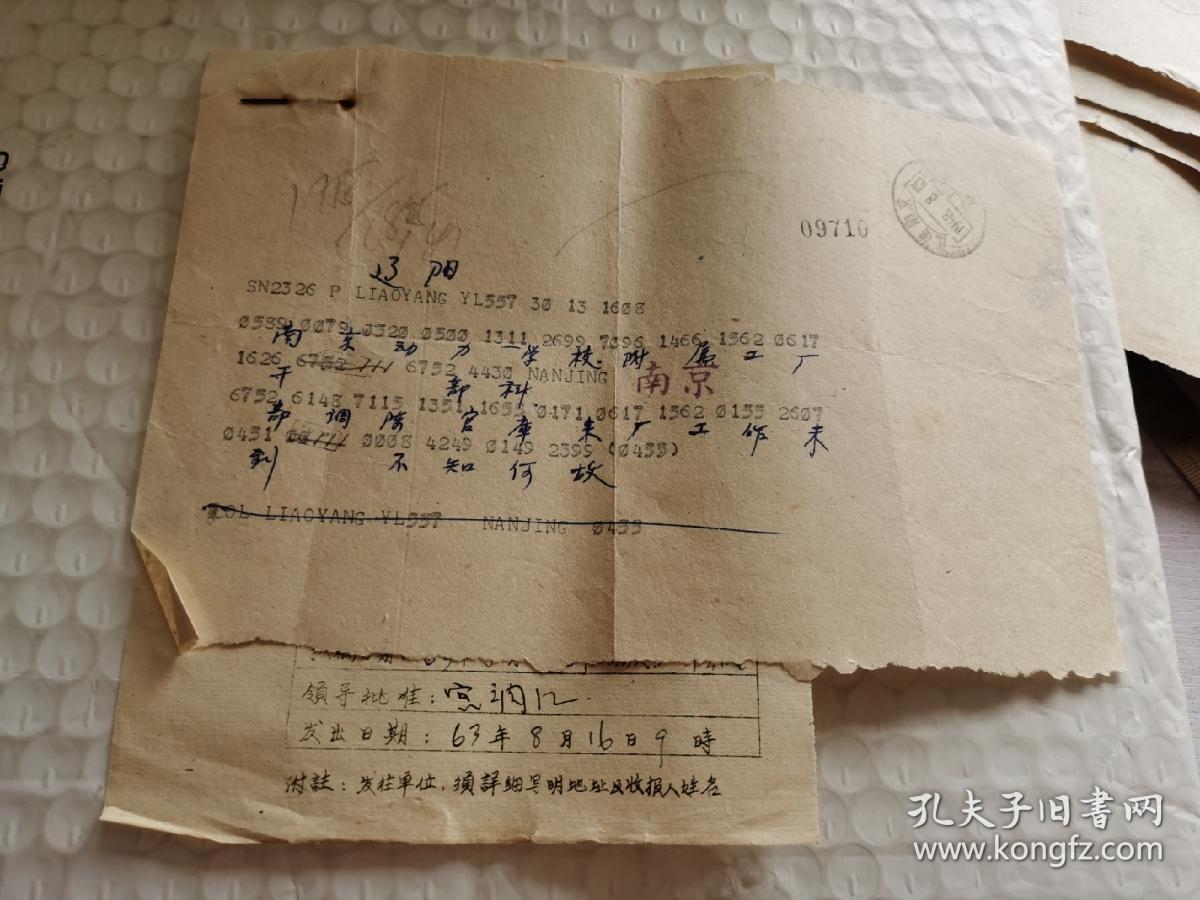 09710
辽阳
SN2326 P LIAOYANG YL557 30 13 1608
0589 0079 0320 0500 1311 2699 7096 1466 1562 0617
南京动力学校附属工厂
1626 6752 111 6752 4430 NANJING 南京
干部科
6752 6148 7115 1351 1655 0171 0617 1562 0155 2607
部调陈官库来厂工作未
0451 0008 4249 0149 2399 (0433)
到不知何故
COL LIAOYANG YL557 NANJING 0433
領导批准:
发出日期: 63年8月16日9時
附註:发往单位,須詳細写明地址及收报人姓名
孔夫子旧书网
www.kongfz.com